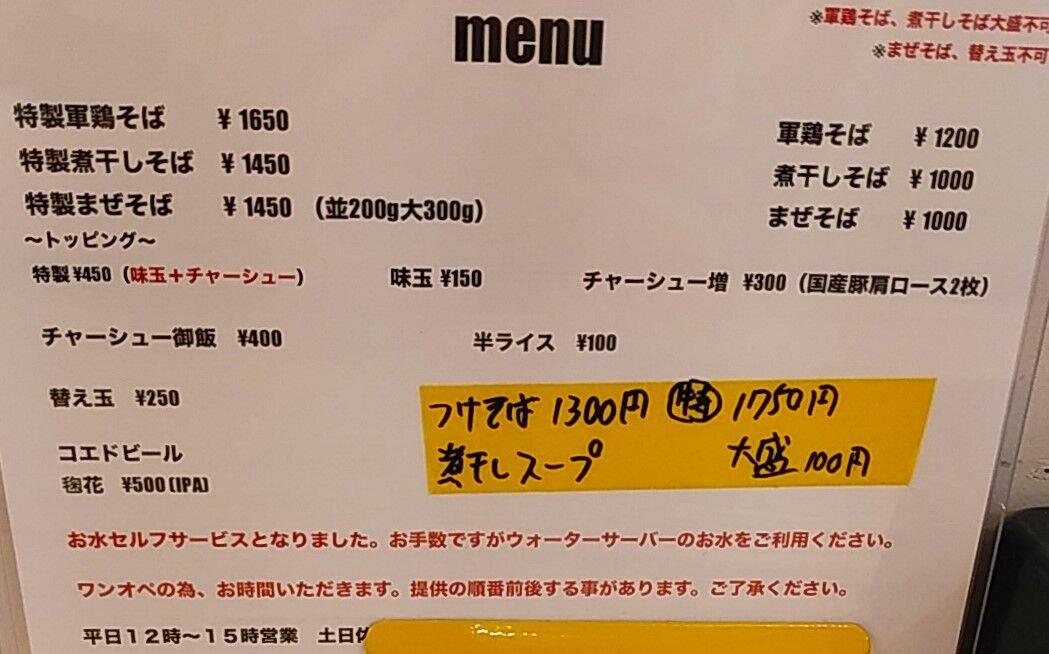 menu
※軍鶏そば、煮干しそば大盛不可
※まぜそば、替え玉不可
特製軍鶏そば ¥1650
軍鶏そば ¥1200
特製煮干しそば ¥1450
煮干しそば ¥1000
特製まぜそば ¥1450 （並200g大300g）
まぜそば ¥1000
〜トッピング〜
特製¥450（味玉＋チャーシュー） 味玉¥150 チャーシュー増 ¥300（国産豚肩ロース2枚）
チャーシュー御飯 ¥400 半ライス ¥100
替え玉 ¥250
つけそば 1300円 特 1750円
煮干しスープ 大盛 100円
コエドビール
毬花 ¥500(IPA)
お水セルフサービスとなりました。お手数ですがウォーターサーバーのお水をご利用ください。
ワンオペの為、お時間いただきます。提供の順番前後する事があります。ご了承ください。
平日１２時〜１５時営業 土日